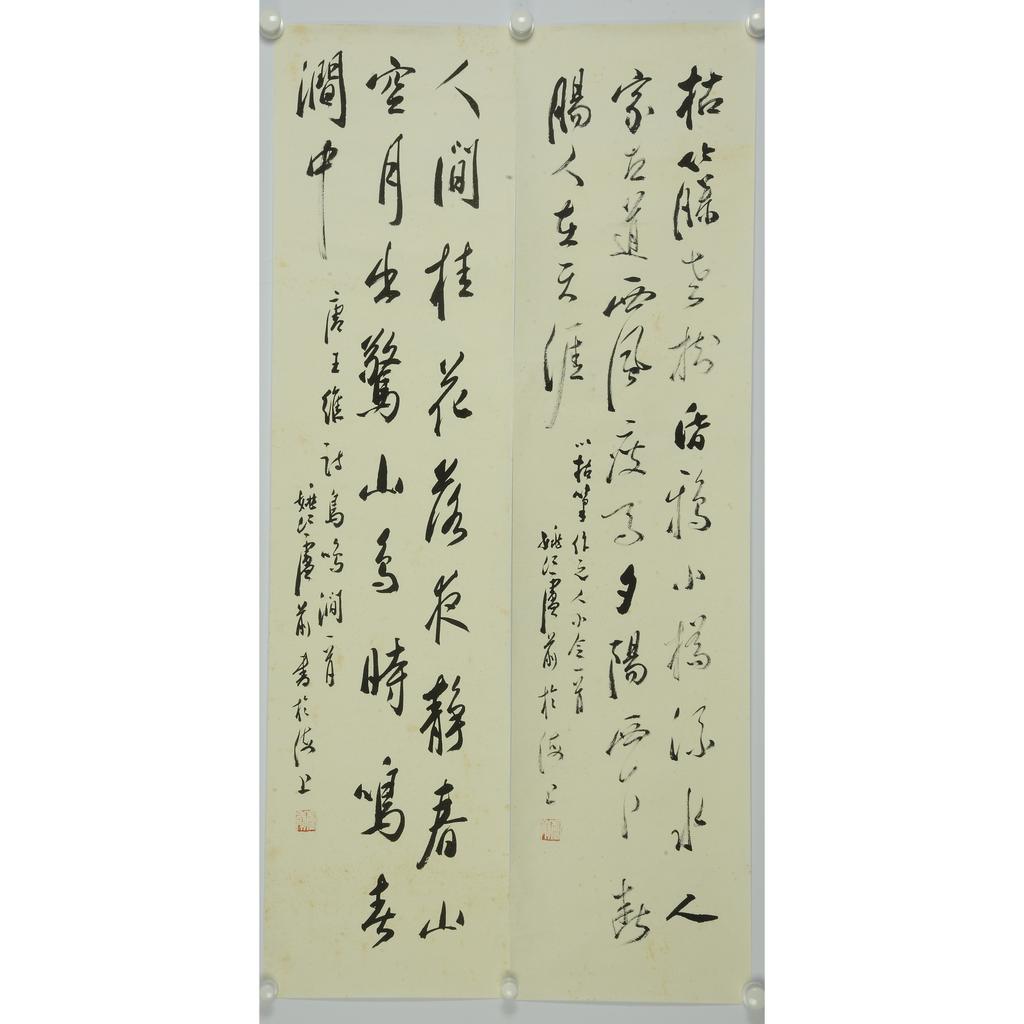 枯籐老樹昏鴉小橋流水人
家古道西風瘦馬夕陽西下斷
腸人在天涯
以枯筆作元人小令一首
姚江 於海上
人閒桂花落夜靜春山
空月出驚山鳥時鳴春
澗中
唐王維詩鳥鳴澗一首
姚江 書於海上